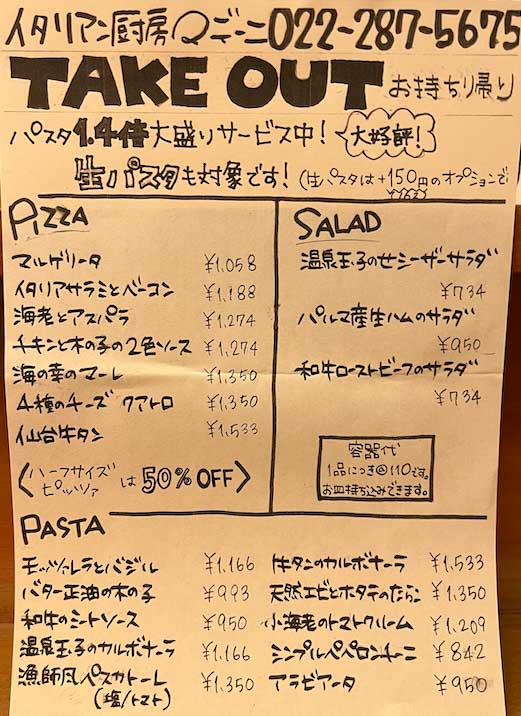 イタリアン厨房 ベーニ 022-287-5675
TAKE OUT お持ち帰り
パスタ1.4倍大盛りサービス中! 大好評!
生パスタも対象です! (生パスタは+150円のオプションで
PIZZA
マルゲリータ ¥1,058
イタリアサラミとベーコン ¥1,188
海老とアスパラ ¥1,274
チキンと木の子の2色ソース ¥1,274
海の幸のマーレ ¥1,350
4種のチーズ クアトロ ¥1,350
仙台牛タン ¥1,533
〈ハーフサイズピッツァは50%OFF〉
SALAD
温泉玉子のせシーザーサラダ
¥734
パルマ産生ハムのサラダ
¥950
和牛ローストビーフのサラダ
¥734
容器代
1品につき@110です。
お皿持ち込みできます。
PASTA
モッツァレラとバジル ¥1,166
バター正油の木の子 ¥993
和牛のミートソース ¥950
温泉玉子のカルボナーラ ¥1,166
漁師風ペスカトーレ ¥1,350
(塩/トマト)
牛タンのカルボナーラ ¥1,533
天然エビとホタテのたらこ ¥1,350
小海老のトマトクリーム ¥1,209
シンプルペペロンチーニ ¥842
アラビアータ ¥950